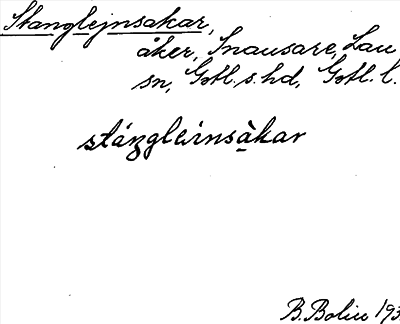 Stanglejnsakar,
åker, Snausare, Lau
sn, Gotl.s.hd, Gotl. l.
stáŋgleinsàkar
B. Bolin 193